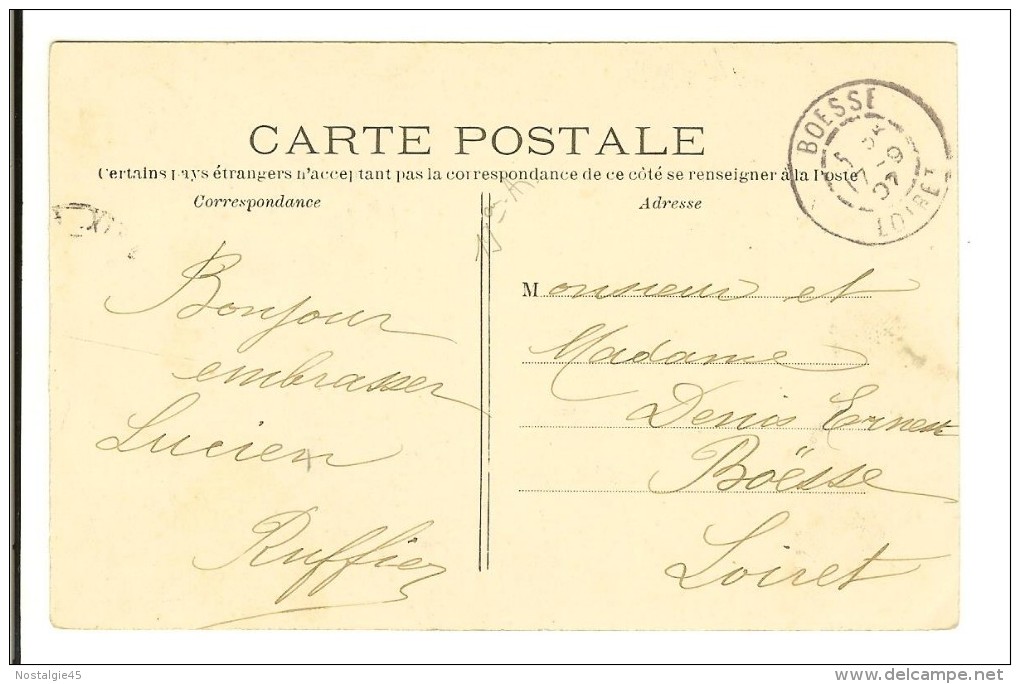 CARTE POSTALE
Certains pays étrangers n'acceptant pas la correspondance de ce côté se renseigner à la Poste
Correspondance
Adresse
BOESSE
LOIRET
Bonjour
embrasser
Lucien
Ruffier
Monsieur et
Madame
Denis Ernest
Boësse
Loiret
Nostalgie45
delcampe.net